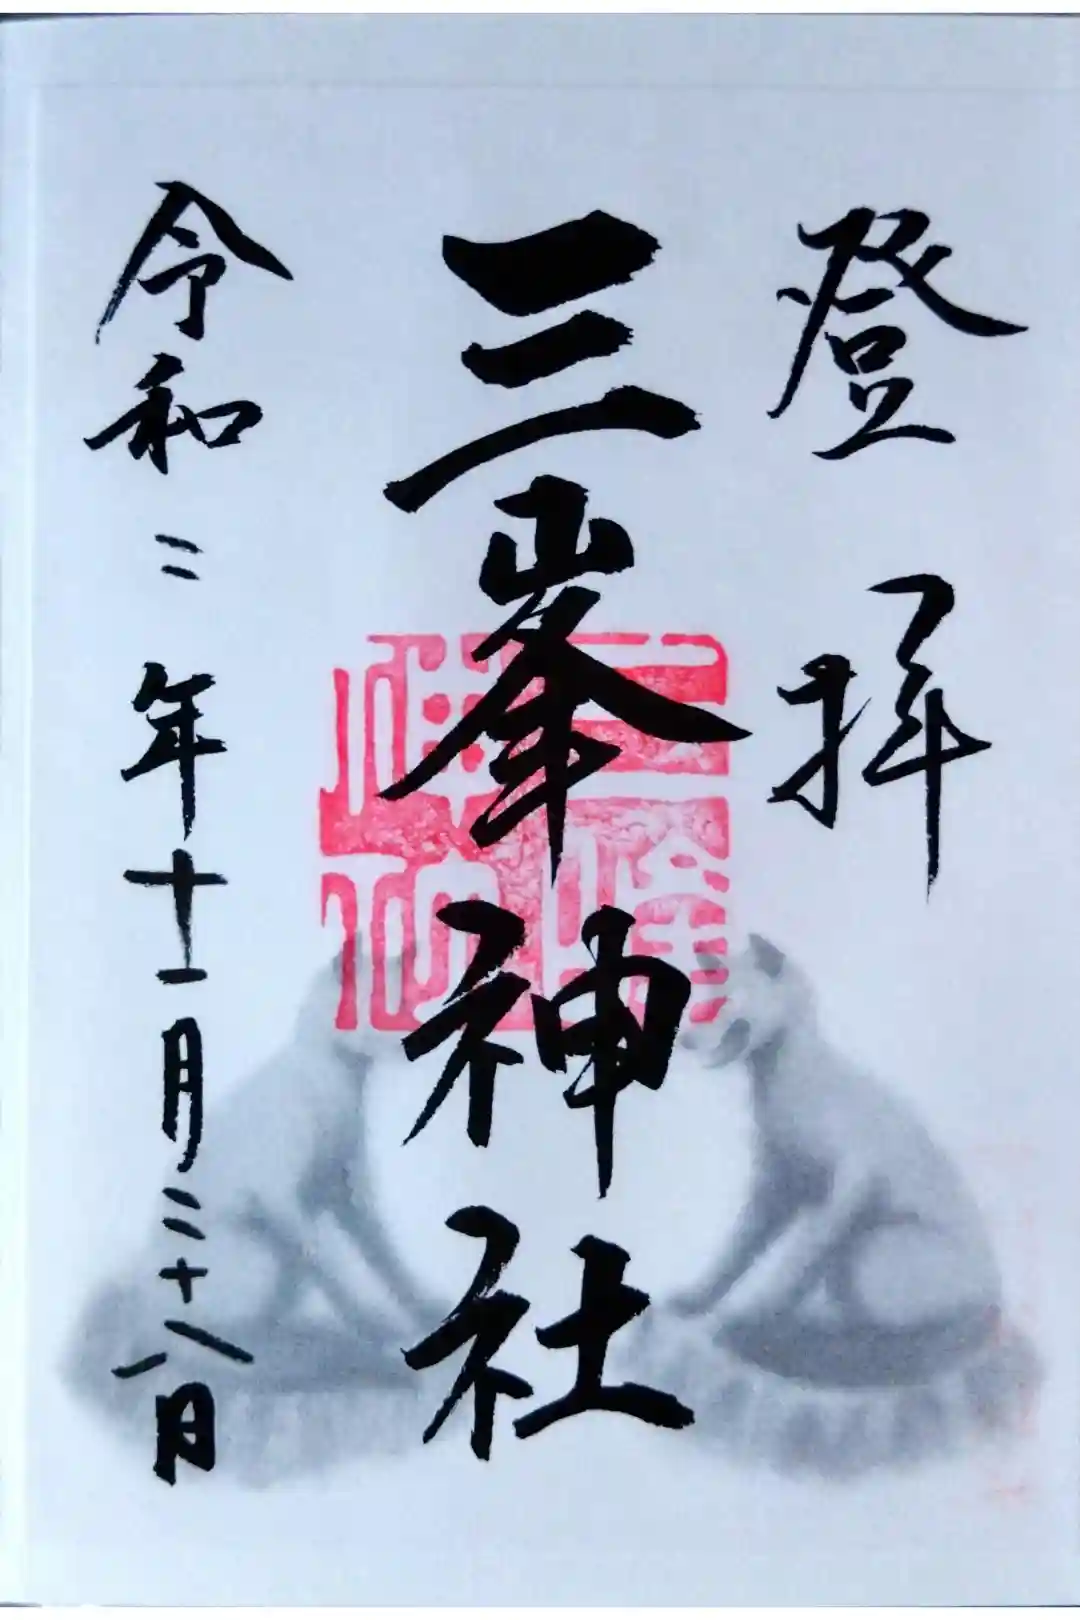 登拝
三峯神社
令和二年十一月二十八日